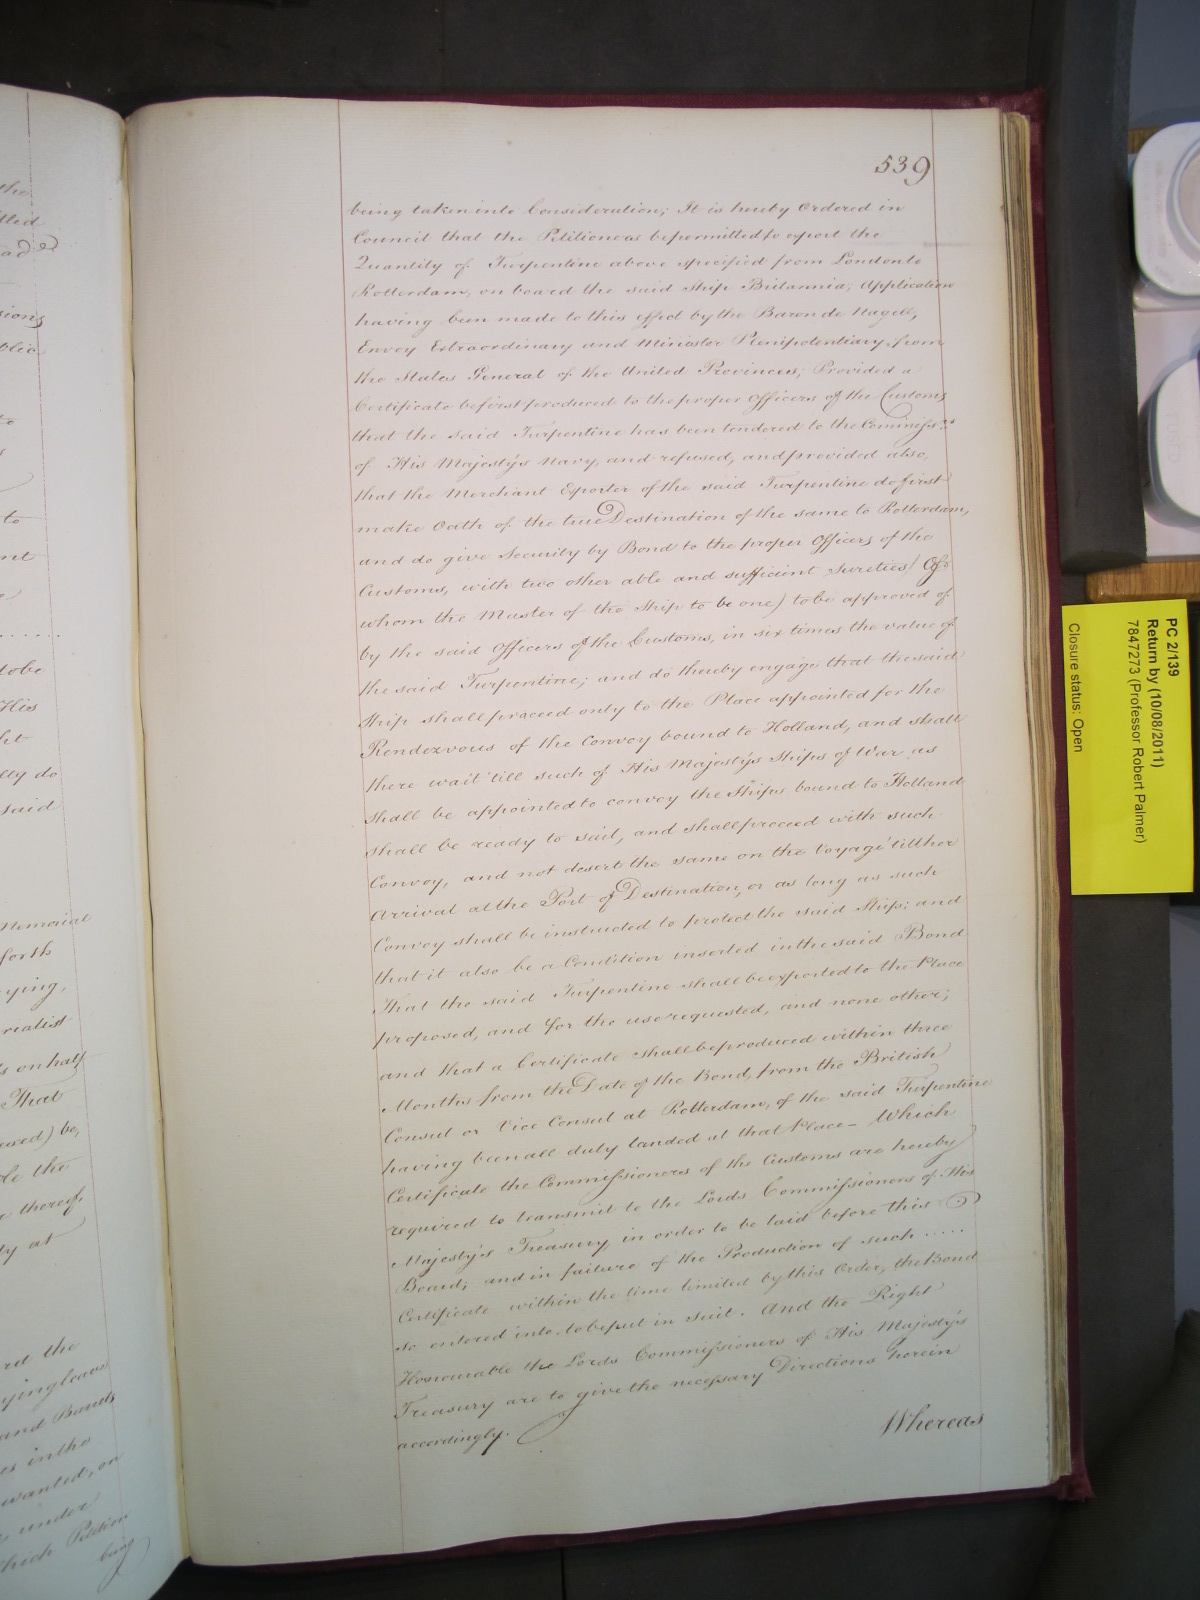 539
being taken into Consideration; It is hereby Ordered in
Council that the Petitioners be permitted to export the
Quantity of Turpentine above specified from London to
Rotterdam, on board the said Ship Britannia; Application
having been made to this effect by the Baron de Nagell,
Envoy Extraordinary and Minister Plenipotentiary, from
the States General of the United Provinces; Provided a
Certificate be first produced to the proper Officers of the Customs,
that the said Turpentine has been tendered to the Commissrs
of His Majesty's Navy, and refused, and provided also,
that the Merchant Exporter of the said Turpentine do first
make Oath of the true Destination of the same to Rotterdam,
and do give Security by Bond to the proper Officers of the
Customs, with two other able and sufficient Sureties (Of
whom the Master of the Ship to be one) to be approved of
by the said Officers of the Customs, in six times the value of
the said Turpentine; and do thereby engage that the said
Ship shall proceed only to the Place appointed for the
Rendezvous of the Convoy bound to Holland, and shall
there wait 'till such of His Majesty's Ships of War as
shall be appointed to convoy the Ships bound to Holland
shall be ready to sail, and shall proceed with such
Convoy, and not desert the same on the Voyage 'till her
arrival at the Port of Destination, or as long as such
Convoy shall be instructed to protect the said Ship; and
that it also be a Condition inserted in the said Bond
That the said Turpentine shall be exported to the Place
proposed, and for the use requested, and none other;
and that a Certificate shall be produced within three
Months from the Date of the Bond, from the British
Consul or Vice Consul at Rotterdam, of the said Turpentine
having been all duly landed at that Place – Which
Certificate the Commissioners of the Customs are hereby
required to transmit to the Lords Commissioners of His
Majesty's Treasury, in order to be laid before this
Board; and in failure of the Production of such .....
Certificate within the time limited by this Order, the Bond
so entered into, to be put in Suit. And the Right
Honourable the Lords Commissioners of His Majesty's
Treasury are to give the necessary Directions herein
accordingly.
Whereas
PC 2/139
Return by (10/08/2011)
7847273 (Professor Robert Palmer)
Closure status: Open